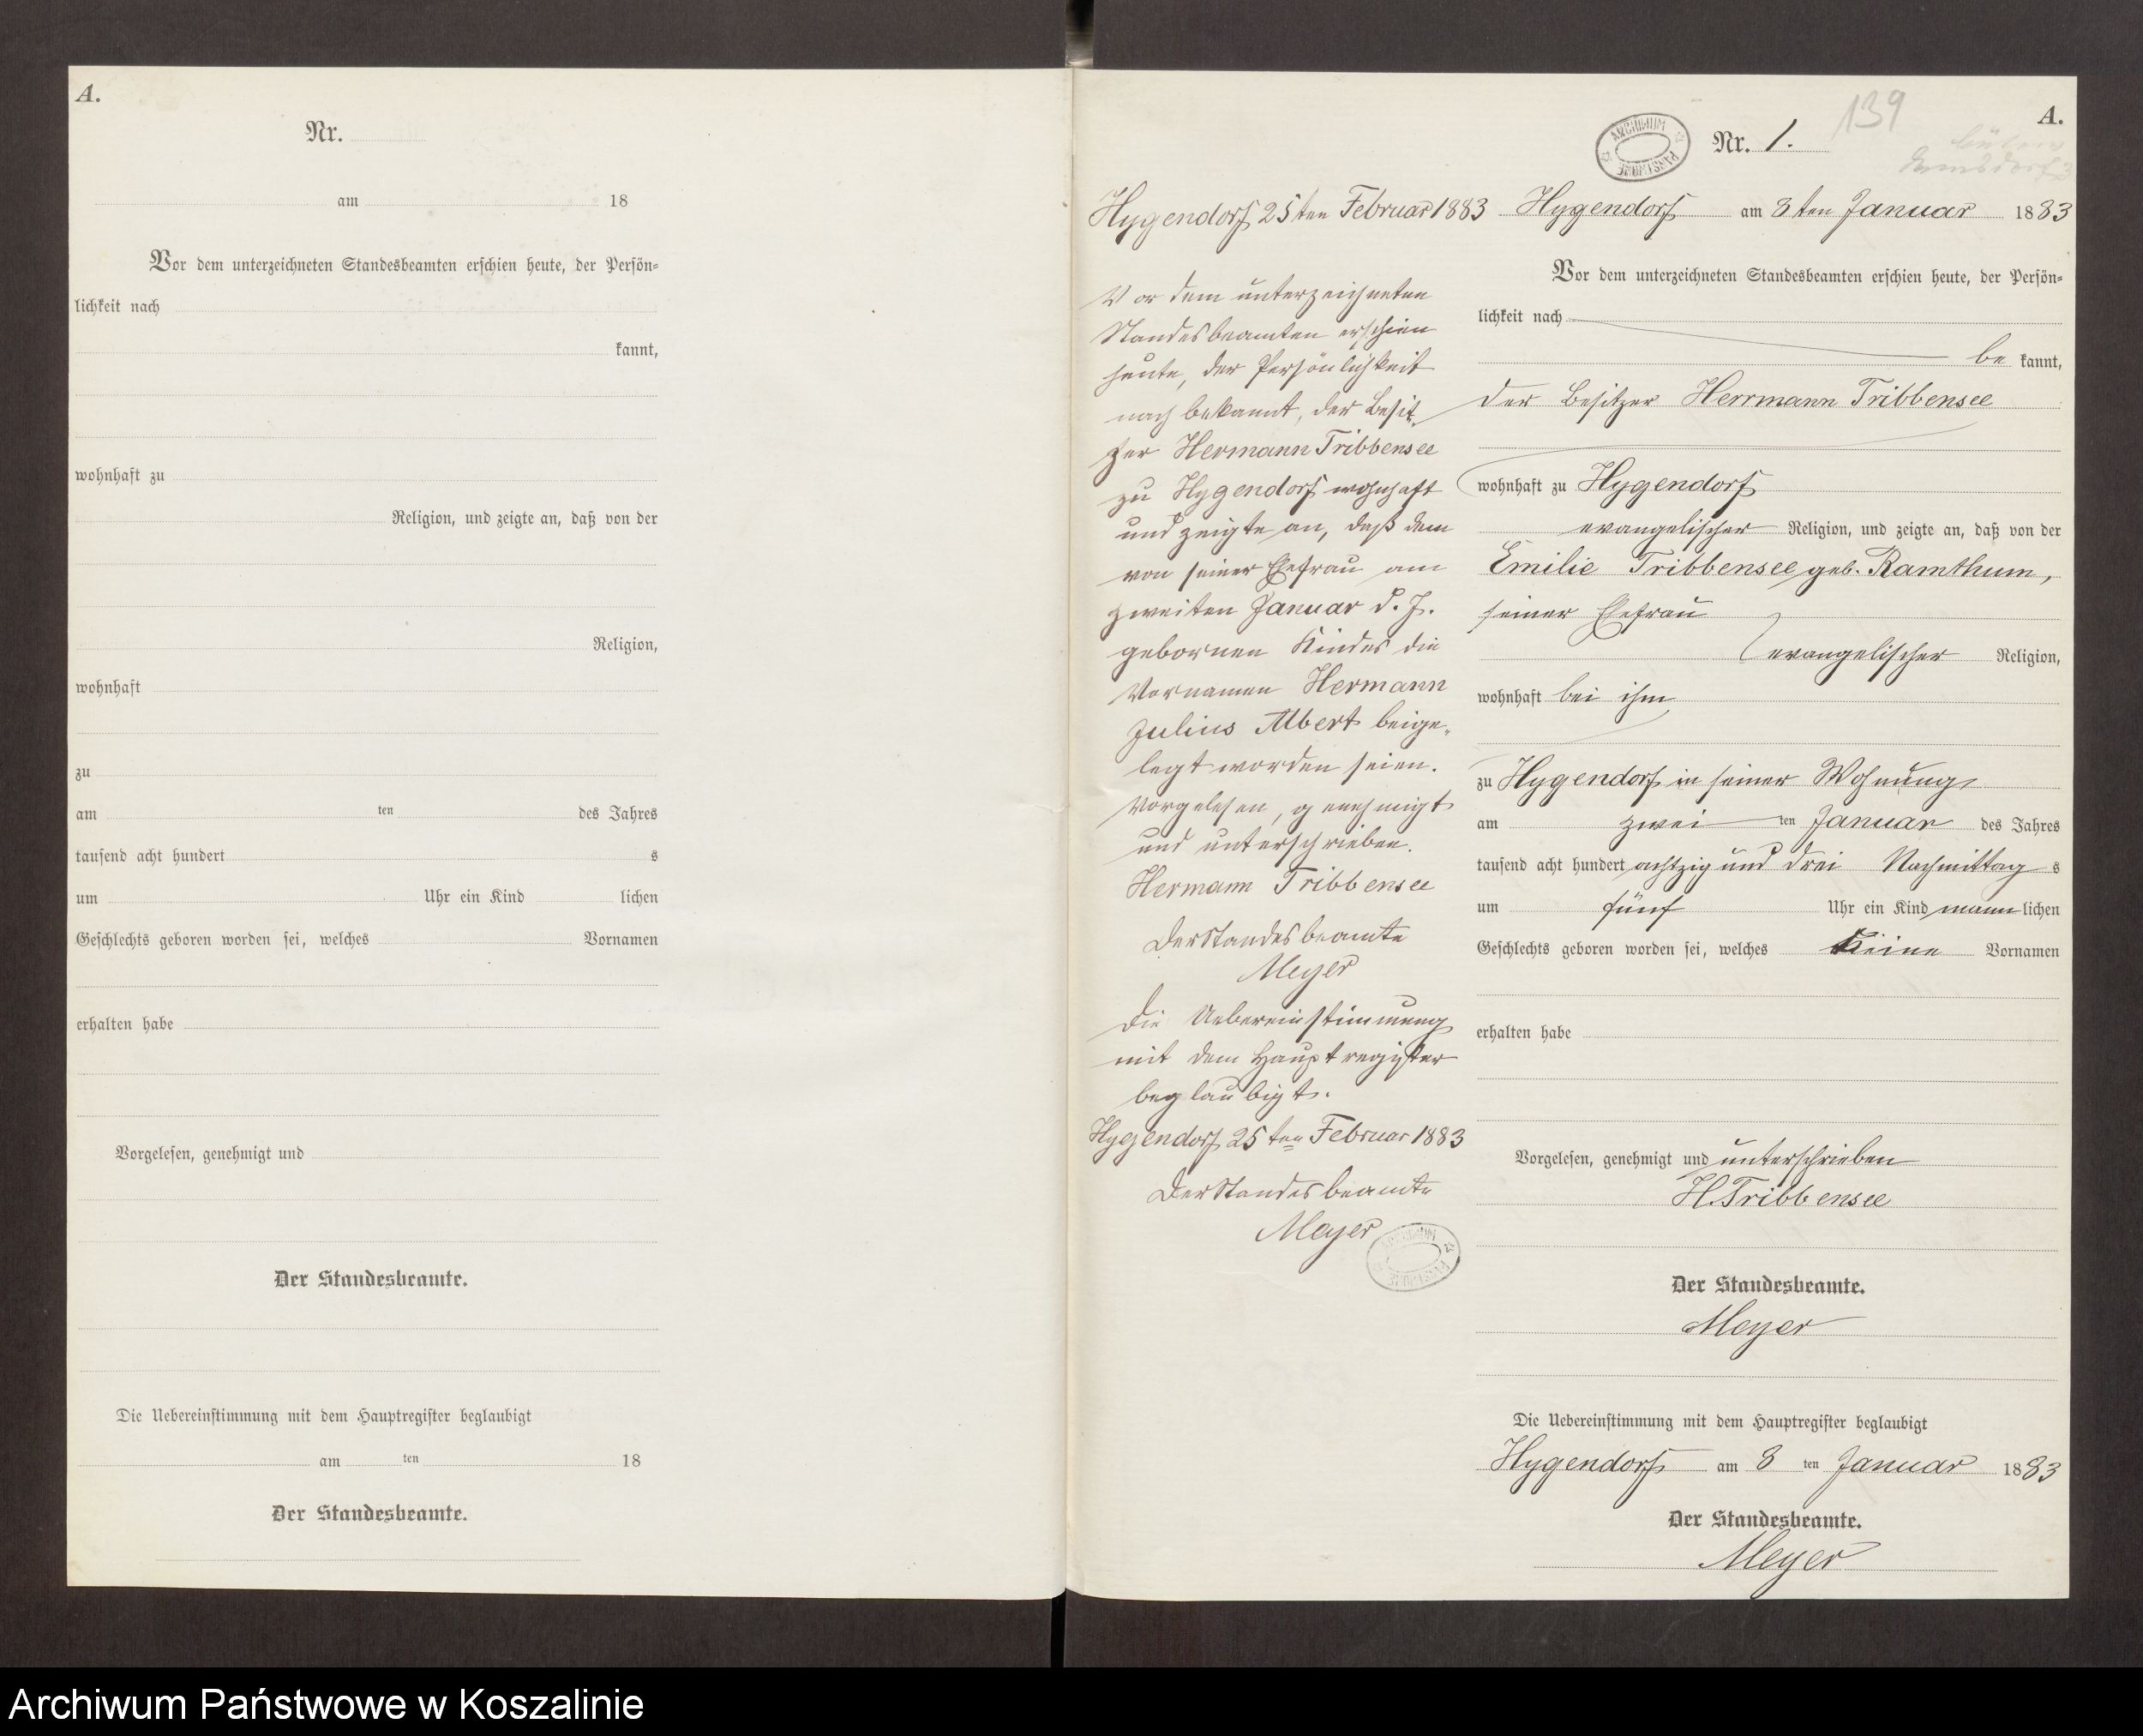 A.
Nr.
am 18
Vor dem unterzeichneten Standesbeamten erschien heute, der Persön-
lichkeit nach
kannt,
wohnhaft zu
Religion, und zeigte an, daß von der
Religion,
wohnhaft
zu
am ten des Jahres
tausend acht hundert s
um Uhr ein Kind lichen
Geschlechts geboren worden sei, welches Vornamen
erhalten habe
Vorgelesen, genehmigt und
Der Standesbeamte.
Die Uebereinstimmung mit dem Hauptregister beglaubigt
am ten 18
Der Standesbeamte.
Hygendorf 25ten Februar 1883
Vor dem unterzeichneten
Standesbeamten erschien
heute, der Persönlichkeit
nach bekannt, der Besit-
zer Hermann Tribbensee
zu Hygendorf wohnhaft
und zeigte an, daß dem
von seiner Ehefrau am
zweiten Januar d. J.
gebornen Kindes die
Vornamen Hermann
Julius Albert beige-
legt worden seien.
Vorgelesen, genehmigt
und unterschrieben.
Hermann Tribbensee
Der Standesbeamte
Meyer
Die Uebereinstimmung
mit dem Hauptregister
beglaubigt.
Hygendorf 25ten Februar 1883
Der Standesbeamte
Meyer
ARCHIWUM PAŃSTWOWE
139
A.
ARCHIWUM PAŃSTWOWE
Nr. 1.
Hygendorf am 8ten Januar 1883
Vor dem unterzeichneten Standesbeamten erschien heute, der Persön-
lichkeit nach
be kannt,
der Besitzer Herrmann Tribbensee
wohnhaft zu Hygendorf
evangelischer Religion, und zeigte an, daß von der
Emilie Tribbensee geb. Ramthum,
seiner Ehefrau
evangelischer Religion,
wohnhaft bei ihm
zu Hygendorf in seiner Wohnung
am zwei ten Januar des Jahres
tausend acht hundert achtzig und drei Nachmittag s
um fünf Uhr ein Kind männ lichen
Geschlechts geboren worden sei, welches Keine Vornamen
erhalten habe
Vorgelesen, genehmigt und unterschrieben
H. Tribbensee
Der Standesbeamte.
Meyer
Die Uebereinstimmung mit dem Hauptregister beglaubigt
Hygendorf am 8 ten Januar 1883
Der Standesbeamte.
Meyer
Archiwum Państwowe w Koszalinie